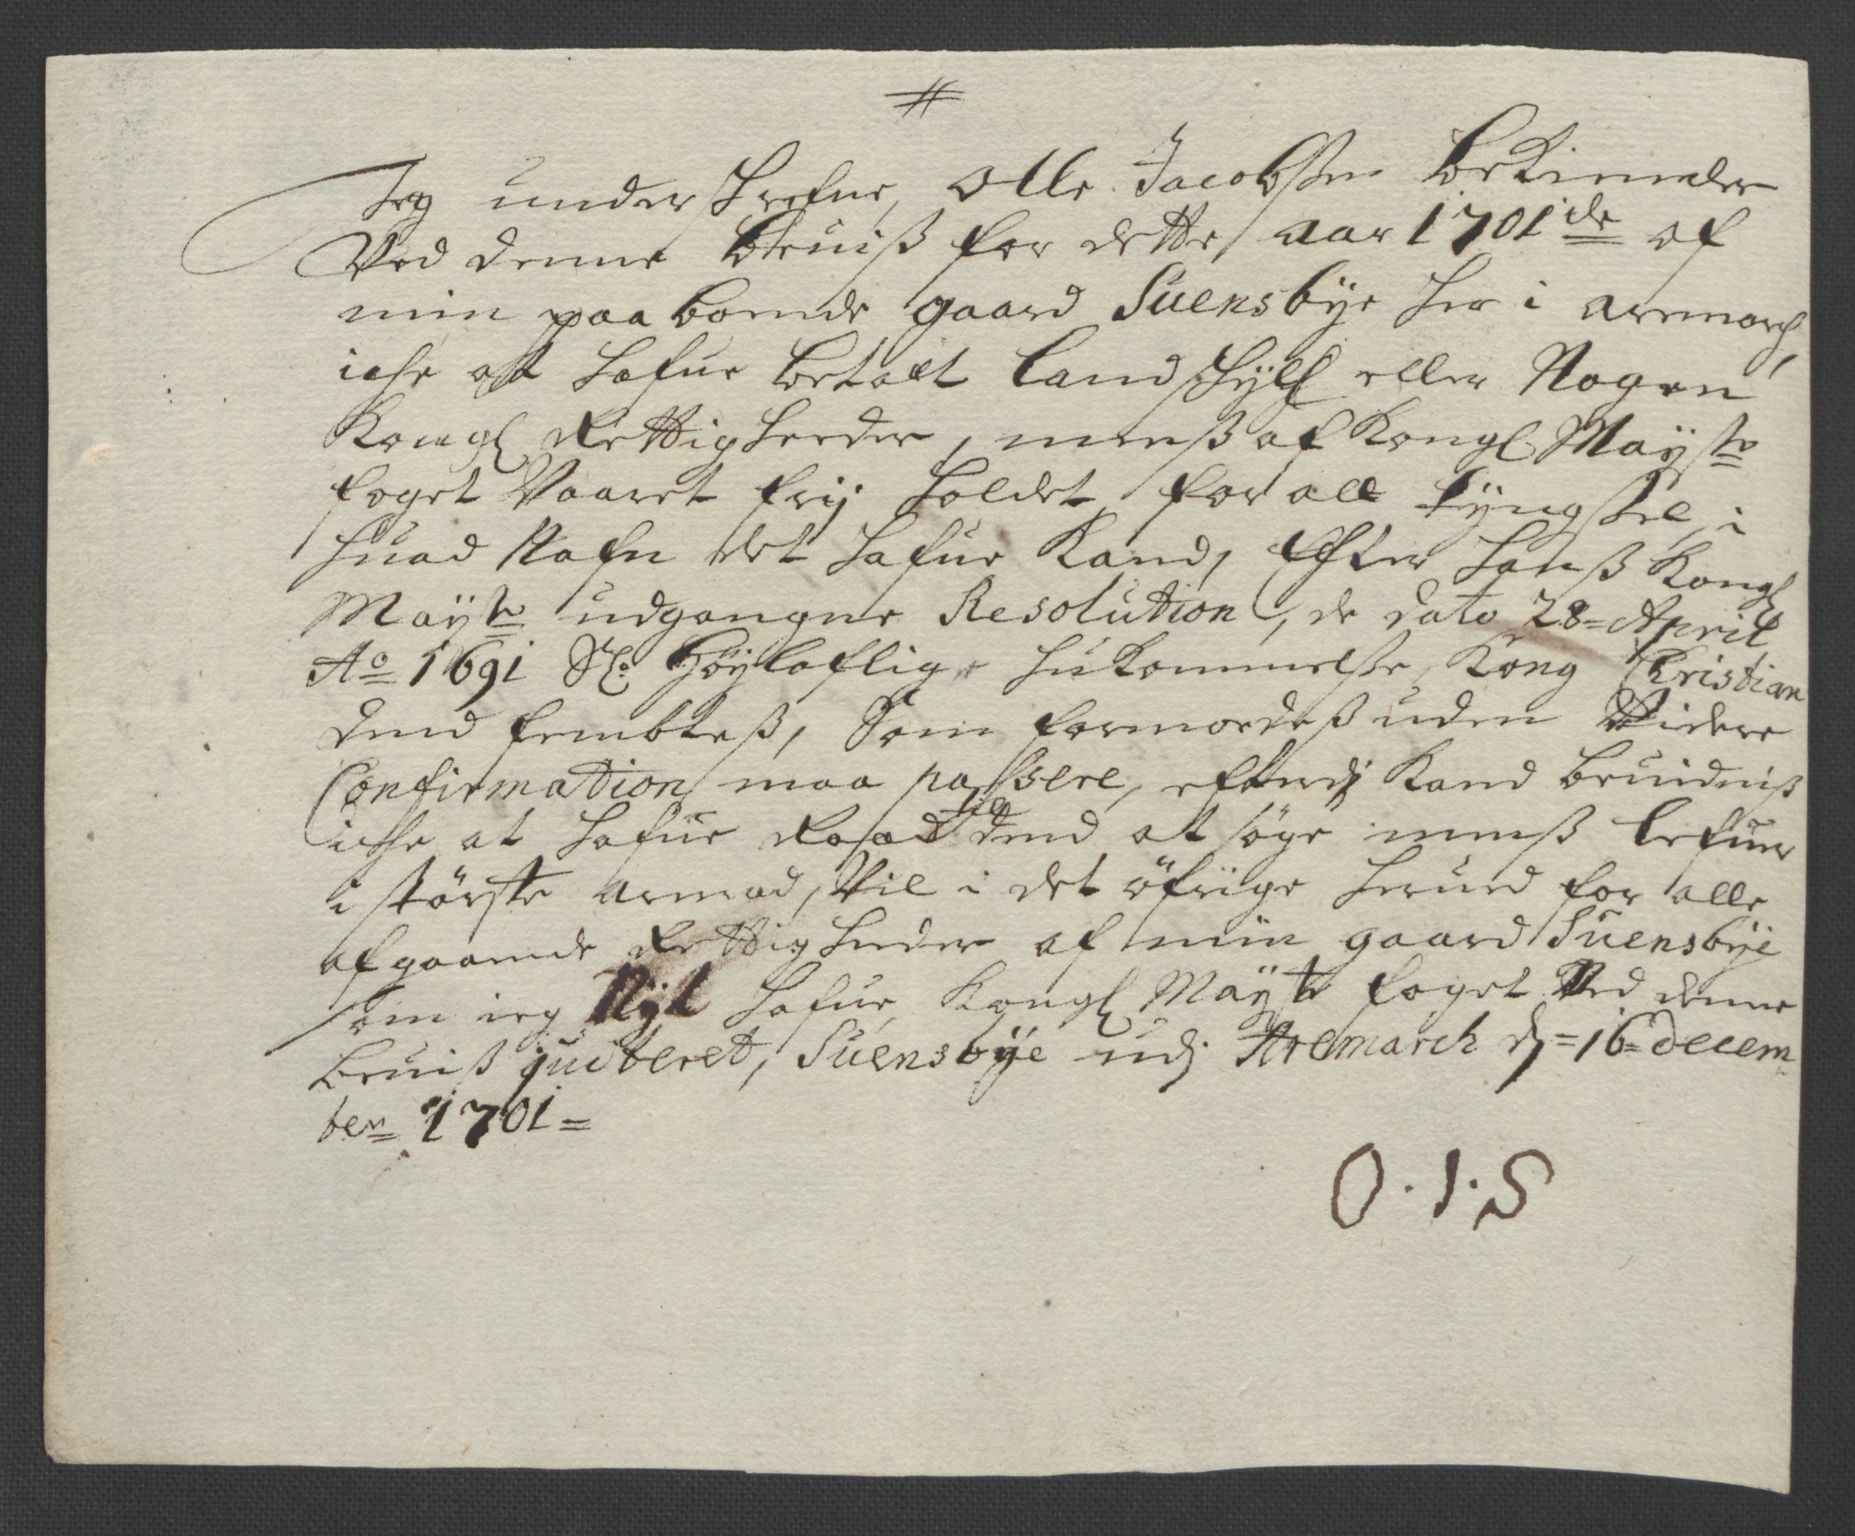 #
Jeg underskrefne, Olle Jacobsen bekiender
Ved denne beviiß for dette aar 1701 de af
min paaboende gaard Suensbÿe her i aremarch,
iche at hafue betalt Landschÿld eller Nogen
Kongl Rettigheeder, menß af Kongl Maÿst
foget Vaaret frij holdet, for all tÿngsel, i
huad Nafn det hafue Kand, Efter hanß Kongl
Maÿst udgangne Resolution, de dato 28 = April
Ao 1691 Sl. Höÿloflige hukommelse, Kong Christian
dend fembteß, Som formodeß uden Videre
Confirmation maa passere, efterdj Kand bruidniß
iche at hafue Raad til dend at söge menß lefuer
i störste armod, Vil i det öfrige herved for alle
afgaaende Rettigheeder af min gaard Suensbÿe
som ieg Nÿt hafue, Kongl Maÿts foget Ved denne
beviiß quiteret, Suensbÿe udj Aremarch d = 16 = decem-
ber 1701 =
O. I. S